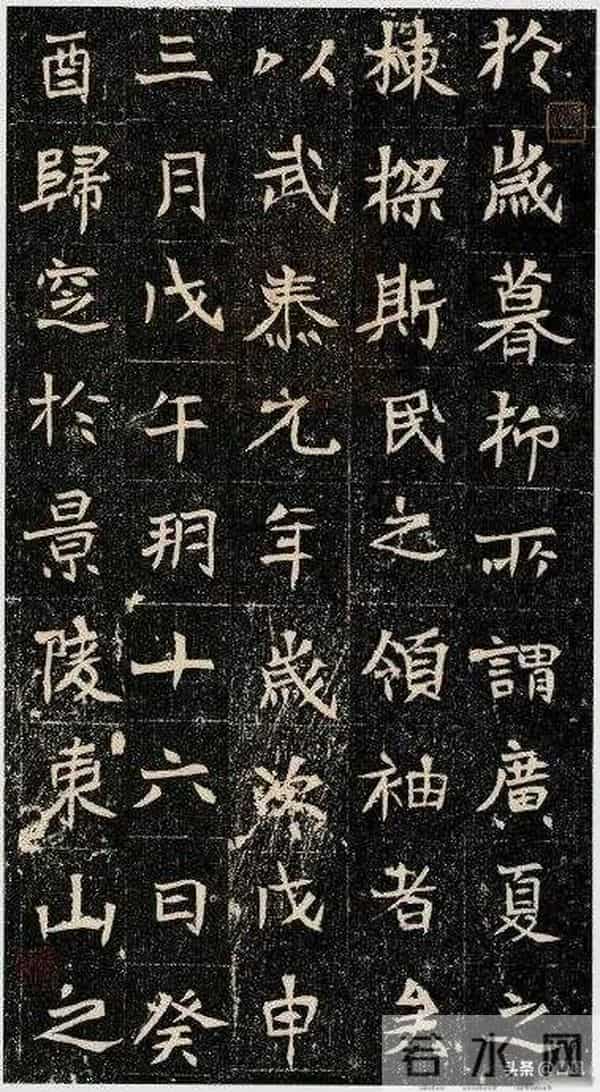 於歲暮抑所謂廣夏之
棟樑斯民之領袖者矣
以武泰元年歲次戊申
三月戊午朔十六日癸
酉歸窆於景陵東山之
若水网
头条